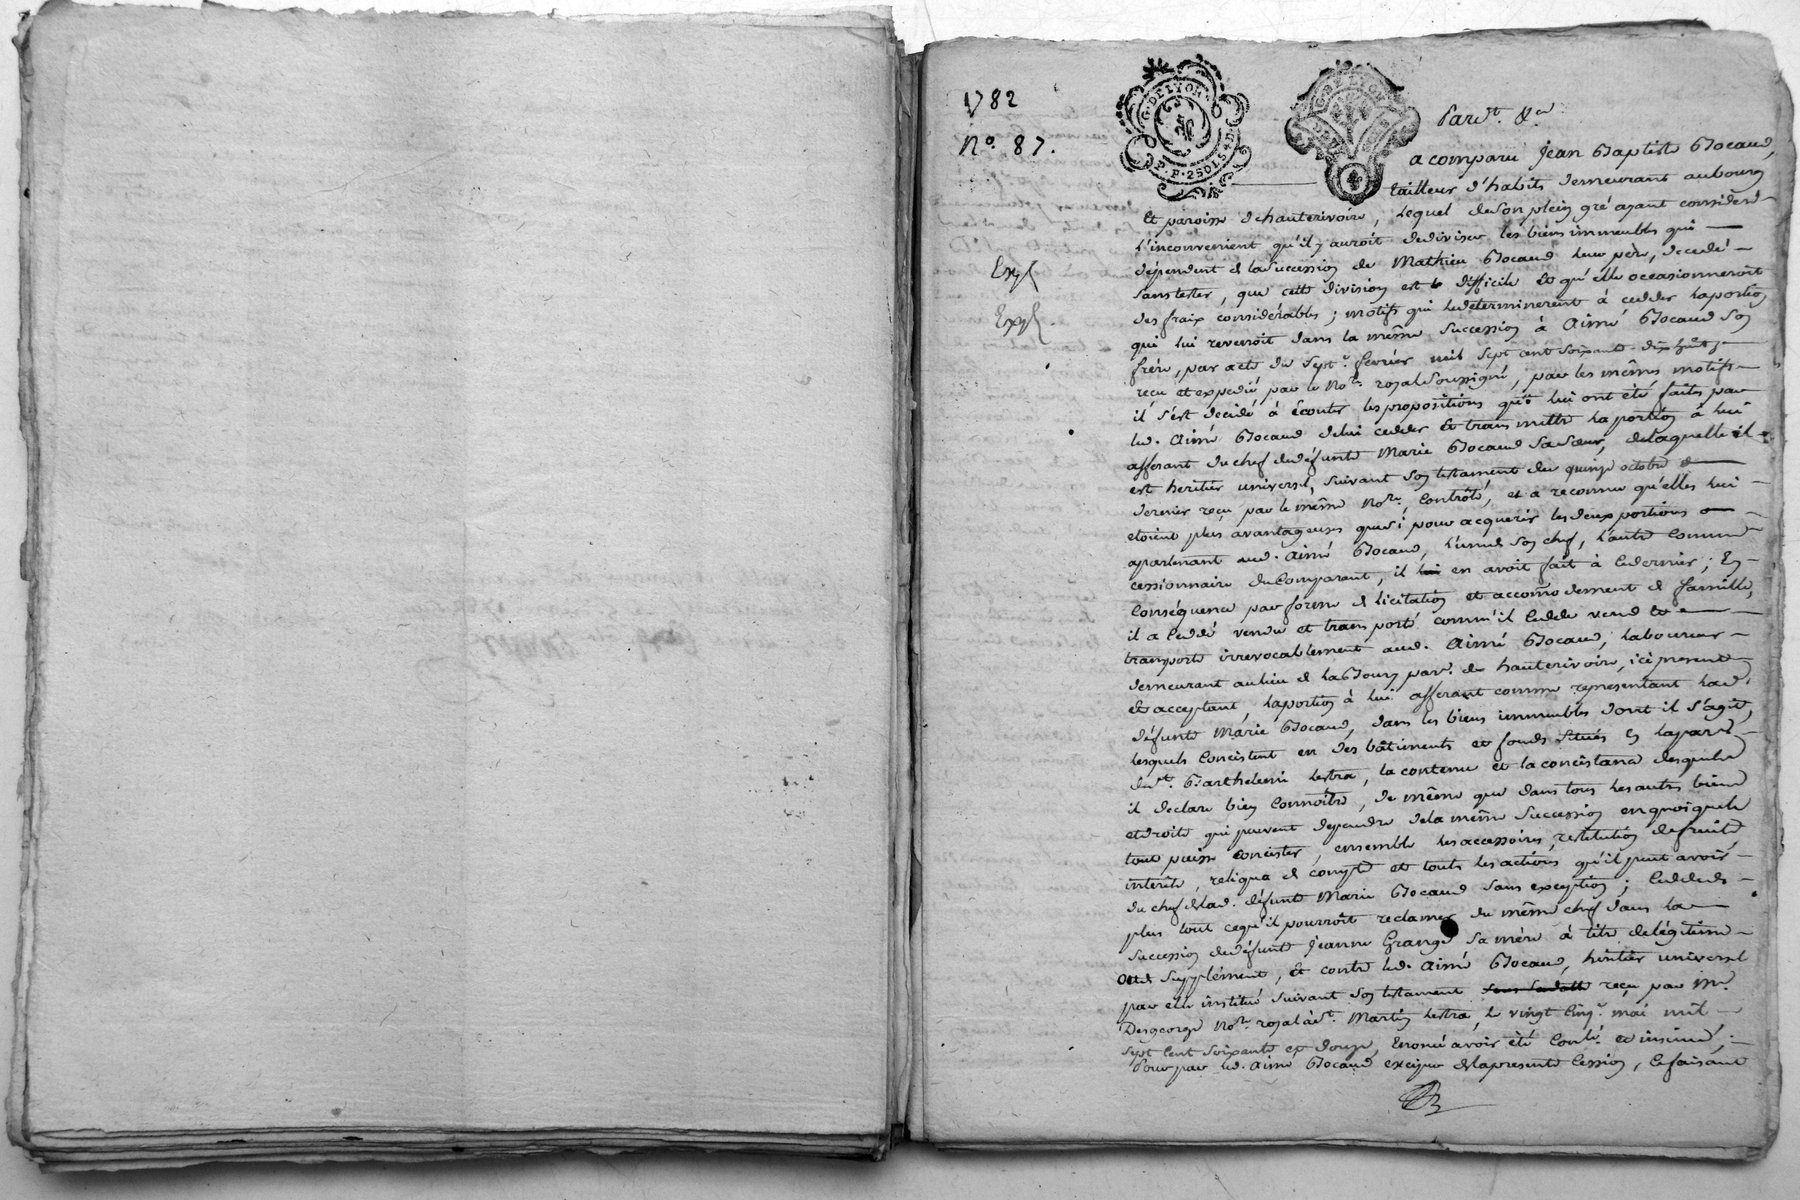 1782
N.º 87.
G. DE LYON
P. P. 2 SOLS 4 D.
Pard.t &.a
a comparu Jean Baptiste Bocaud,
tailleur d'habits demeurant au bourg
Et paroisse d'hauterivoire, Lequel de son plein gré ayant consideré
L'inconvenient qu'il y auroit de diviser les biens immeubles qui
dépendent de la Succession de Mathieu Bocaud leur père, decedé
sans tester, que cette division est difficile Et qu'elle occasionneroit
des fraix considérables; motifs qui le determinerent à cedder la portion
qui lui revenoit dans la même Succession à Aimé Bocaud son
frère, par acte du Sept.e fevrier mil sept cent soixante dix huit,
reçu et expedié par le No.re royal Soussigné, par les mêmes motifs
il s'est decidé à Ecouter les propositions qui lui ont été faites par
led. Aimé Bocaud de lui cedder Et transmettre la portion à lui
afferant du chef de défunte Marie Bocaud sa sœur, de laquelle il
est heritier universel, suivant son testament du quinze octobre
dernier reçu par le même No.re, Controlé, et a reconnu qu'elles lui
etoient plus avantageuses que si pour acquerir les deux portions
apartenant aud. Aimé Bocaud, l'une de son chef, l'autre comme
cessionnaire du Comparant, il en avoit fait à ce dernier; En
Conséquence par forme de licitation et accomodement de famille,
il a Ceddé vendu et transporté comm'il Cedde vend et
transporte irrevocablement aud. Aimé Bocaud, laboureur
demeurant au lieu de la Boury par.e de hauterivoire, ici present
Et acceptant, la portion à lui afferant comme representant lad.
défunte Marie Bocaud, dans les biens immeubles dont il s'agit,
lesquels Concistent en des bâtiments et fonds situés en la par.e
de S.t Barthelemi Lestra, la contenue et la concistance desquels
il declare bien Connoître, de même que dans tous les autres biens
et droits qui peuvent dependre de la même Succession en quoi que le
tout puisse concister, ensemble les accessoires, restitution de fruits,
interêts, reliqua de compte et touts les actions qu'il peut avoir
du chef de lad. défunte Marie Bocaud sans exception; Cedde de
plus tout ce qu'il pourroit reclamer du même chef dans la
Succession de défunte Jeanne Grange sa mère à titre de légitime
ou de Supplément, Et contre led. Aimé Bocaud, heritier universel
par elle institué suivant son testament reçu par M.e
Desgeorge No.re royal à S.t Martin Lestra, le vingt cinq mai mil
sept cent soixante et douze, Enoncé avoir été Con.lé et insinué;
Pour par led. Aimé Bocaud exciper de la presente Cession, Ce faisant